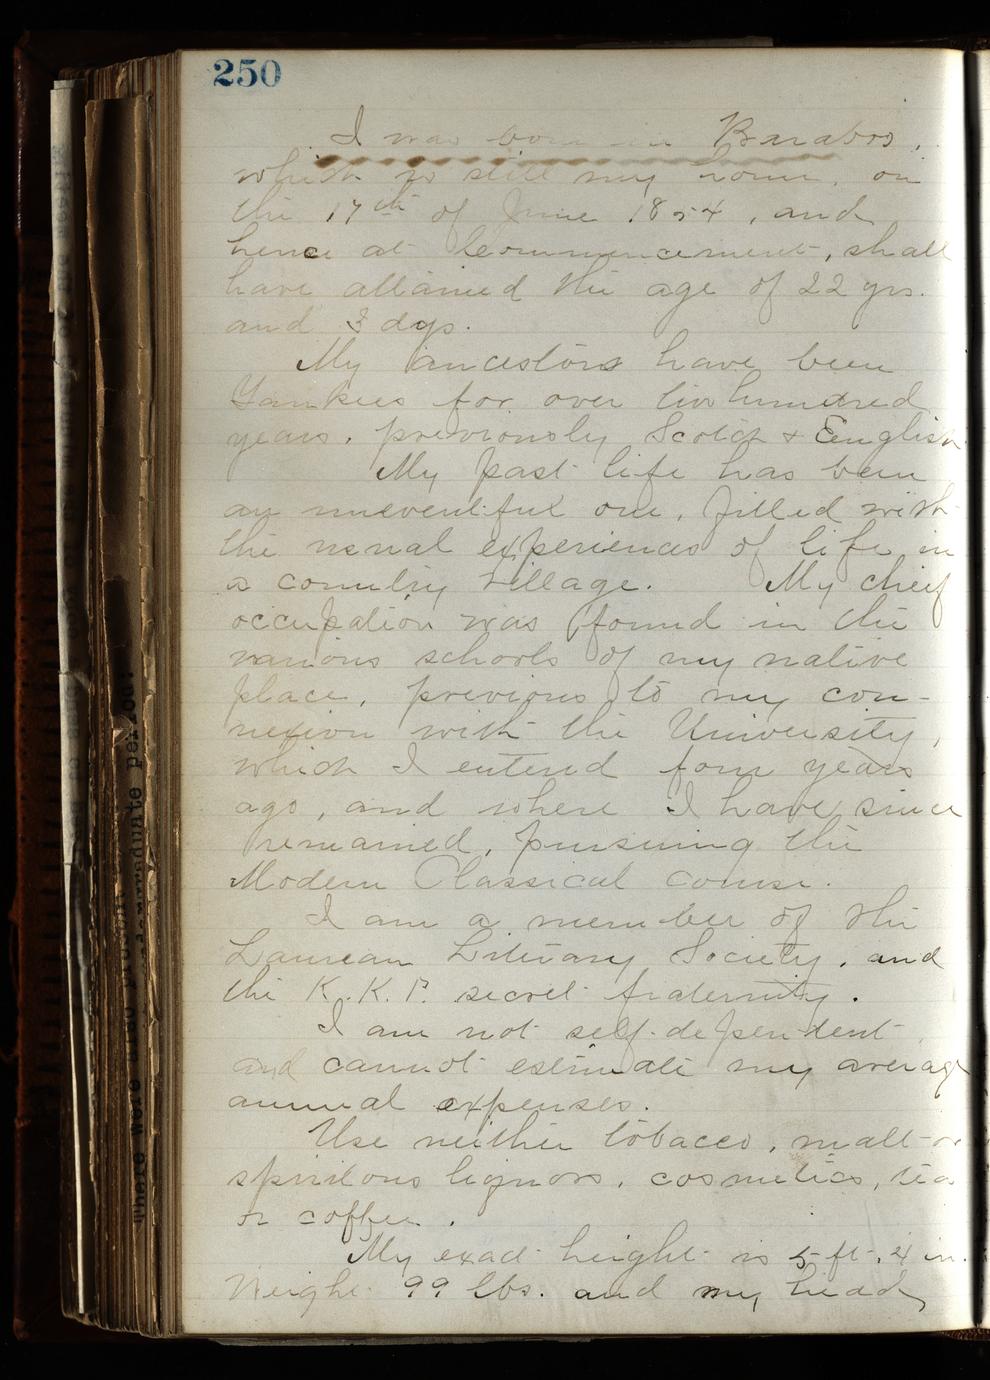 250
I was born in Baraboo,
which is still my home, on
the 17th of June 1854, and
hence at Commencement, shall
have attained the age of 22 yrs.
and 3 dys.
My ancestors have been
Yankees for over two hundred
years, previously Scotch & English
My past life has been
an uneventful one, filled with
the usual experiences of life in
a country village. My chief
occupation was found in the
various schools of my native
place, previous to my con-
nexion with the University,
which I entered four years
ago, and where I have since
remained, pursuing the
Modern Classical course.
I am a member of the
Laurean Literary Society, and
the K. K. Γ. secret fraternity.
I am not self-dependent
and cannot estimate my average
annual expenses.
Use neither tobacco, malt or
spiritous liquors, cosmetics, tea
or coffee.
My exact height is 5 ft. 4 in.
Weight 99 lbs. and my head